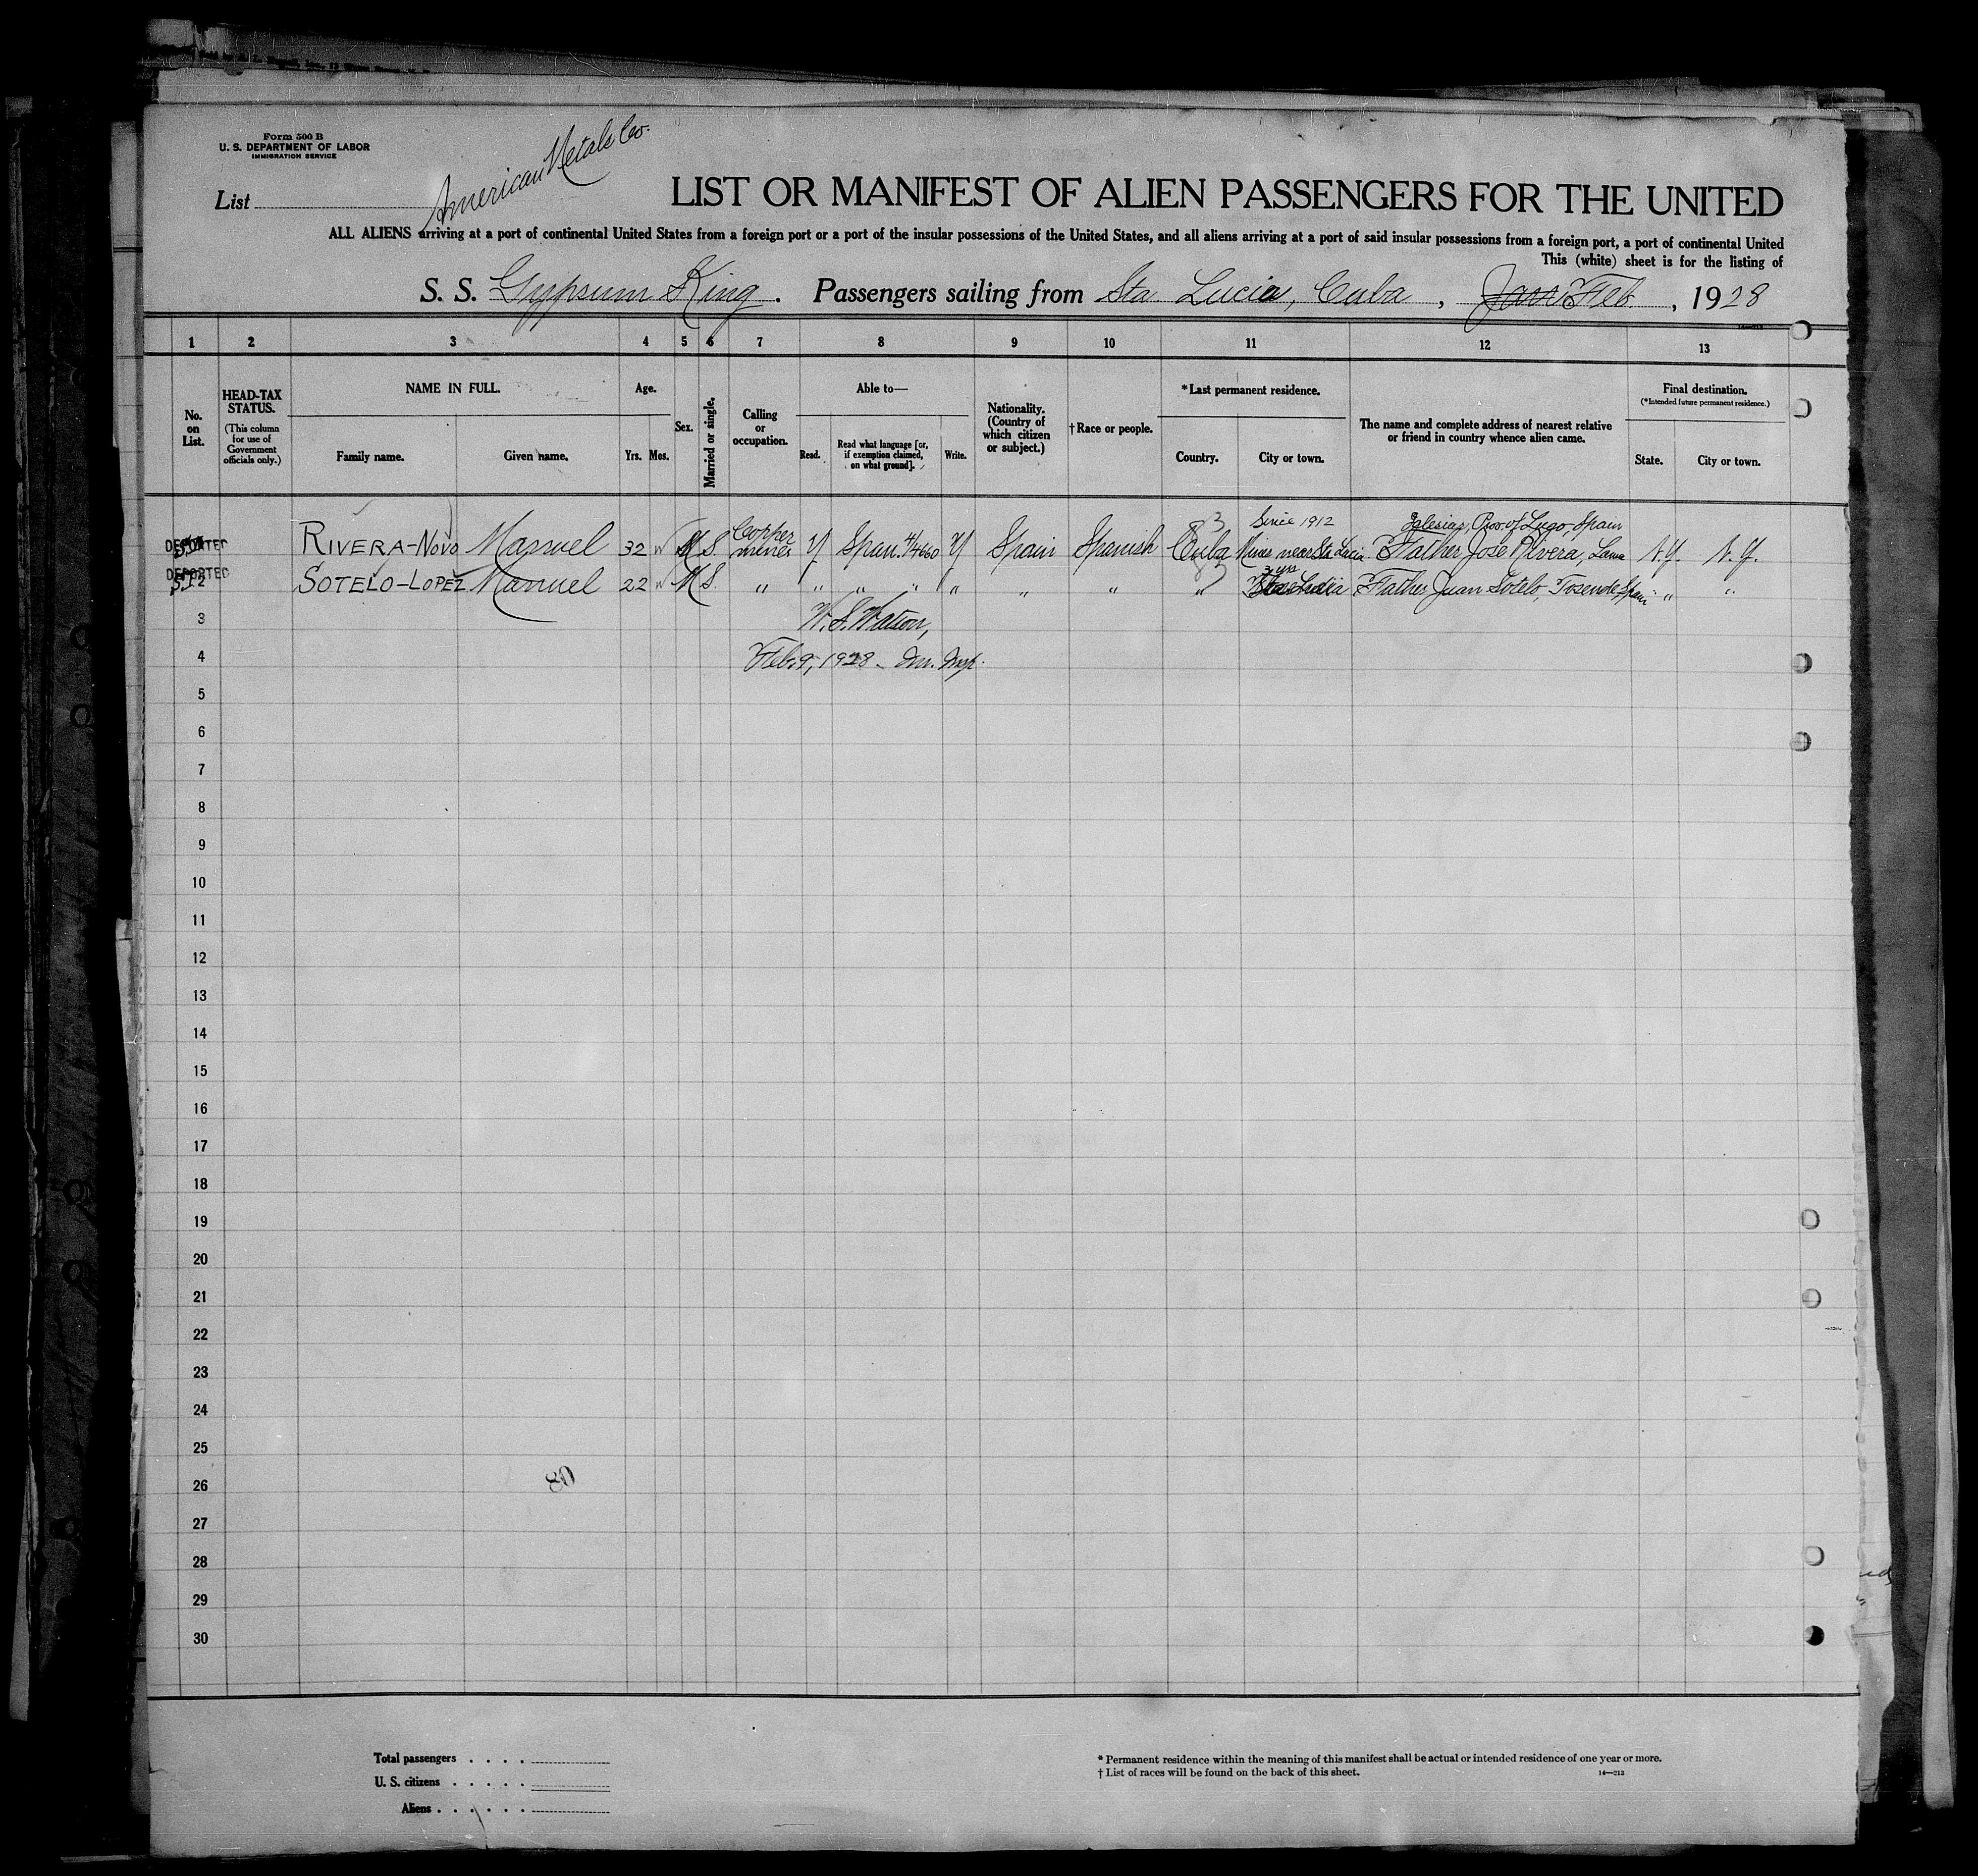 Form 500 B
U. S. DEPARTMENT OF LABOR
IMMIGRATION SERVICE
American Metals Co.
List
LIST OR MANIFEST OF ALIEN PASSENGERS FOR THE UNITED
ALL ALIENS arriving at a port of continental United States from a foreign port or a port of the insular possessions of the United States, and all aliens arriving at a port of said insular possessions from a foreign port, a port of continental United
This (white) sheet is for the listing of
S. S. Gypsum King. Passengers sailing from Sta Lucia, Cuba, Jan Feb., 1928
1 2 3 4 5 6 7 8 9 10 11 12 13
No. on List.
HEAD-TAX STATUS.
(This column for use of Government officials only.)
NAME IN FULL.
Family name. Given name.
Age.
Yrs. Mos.
Sex.
Married or single.
Calling or occupation.
Able to—
Read. Read what language [or, if exemption claimed, on what ground]. Write.
Nationality. (Country of which citizen or subject.)
†Race or people.
*Last permanent residence.
Country. City or town.
The name and complete address of nearest relative or friend in country whence alien came.
Final destination.
(*Intended future permanent residence.)
State. City or town.
Since 1912 Iglesias, Prov. of Lugo, Spain
DEPORTED RIVERA-NOVO Manuel 32 M S. Copper mines Y Span. Y Spain Spanish Cuba Mines near Sta Lucia Father Jose Rivera, Lama N.Y. N.Y.
3 yrs
DEPORTED 2 SOTELO-LOPEZ Manuel 22 M S. " " " " " " " " Father Juan Sotelo, Tosende Spain " "
3 W. S. Watson,
4 Feb. 9, 1928 - Im. Insp.
5
6
7
8
9
10
11
12
13
14
15
16
17
18
19
20
21
22
23
24
25
26 80
27
28
29
30
Total passengers . . . .
U. S. citizens . . . . .
Aliens . . . . . .
* Permanent residence within the meaning of this manifest shall be actual or intended residence of one year or more.
† List of races will be found on the back of this sheet. 14—213